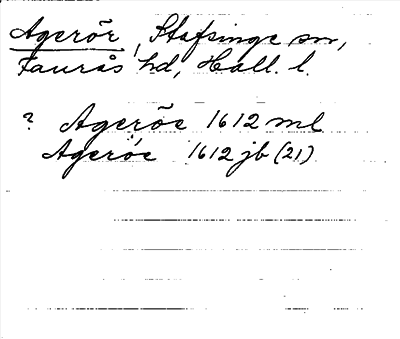 Agerör, Stafsinge sn,
Faurås hd, Hall. l.
? Ageröe 1612 ml
Ageröe 1612 jb (21)